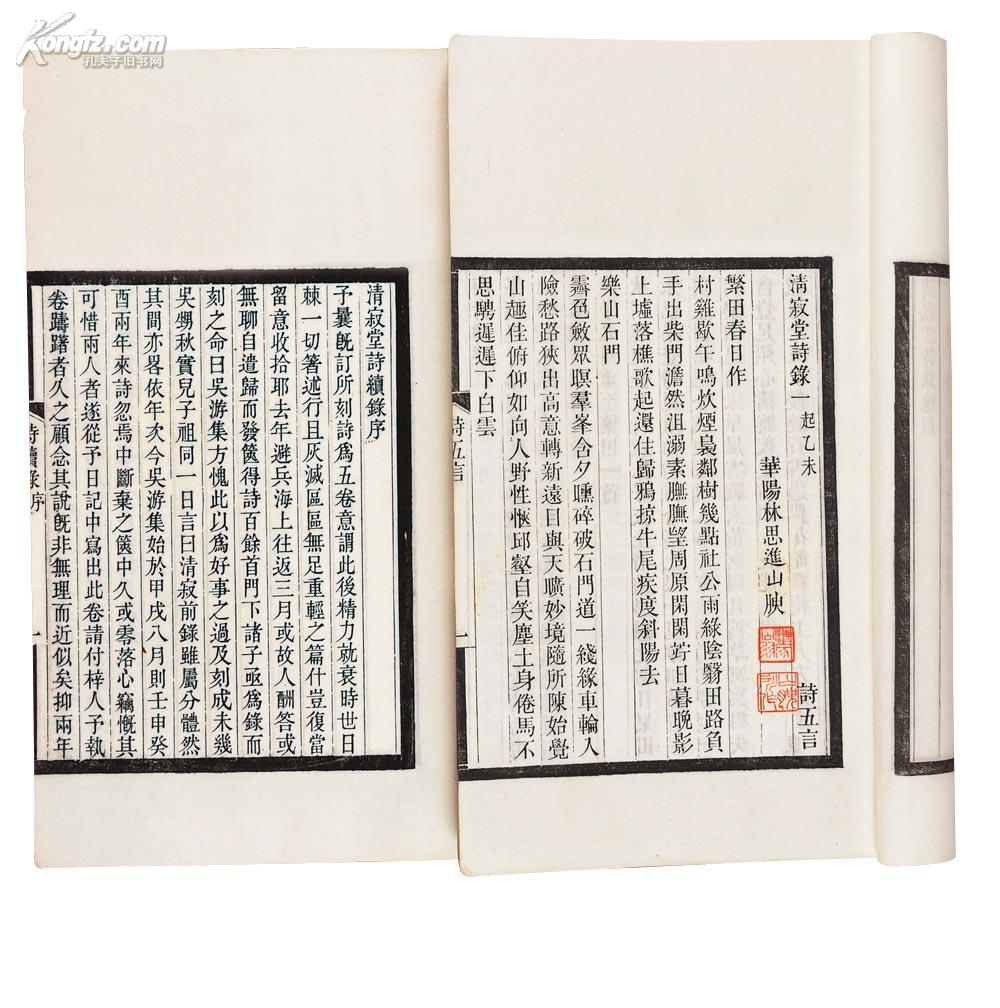 Kongfz.com
孔夫子旧书网
清寂堂詩錄一 起乙未 詩五言
華陽林思進山腴
繁田春日作
村雞歇午鳴炊煙裊鄰樹幾點社公雨綠陰翳田路負
手出柴門澹然沮溺素膴膴望周原閑閑竚日暮晚影
上墟落樵歌起還住歸鴉掠牛尾疾度斜陽去
樂山石門
霽色斂眾暝羣峯含夕曛碎破石門道一綫緣車輪入
險愁路狹出高意轉新遠目與天曠妙境隨所陳始覺
山趣佳俯仰如向人野性愜邱壑自笑塵土身倦馬不
思騁遲遲下白雲
詩五言
一
清寂堂詩續錄序
予曩旣訂所刻詩爲五卷意謂此後精力就衰時世日
棘一切箸述行且灰滅區區無足重輕之篇什豈復當
留意收拾耶去年避兵海上往返三月或故人酬答或
無聊自遣歸而發篋得詩百餘首門下諸子亟爲錄而
刻之命曰吳游集方愧此以爲好事之過及刻成未幾
吳甥秋實兒子祖同一日言曰清寂前錄雖屬分體然
其間亦畧依年次今吳游集始於甲戌八月則壬申癸
酉兩年來詩忽焉中斷棄之篋中久或零落心竊慨其
可惜兩人者遂從予日記中寫出此卷請付梓人予執
卷躊躇者久之顧念其說旣非無理而近似矣抑兩年
詩續錄序
一